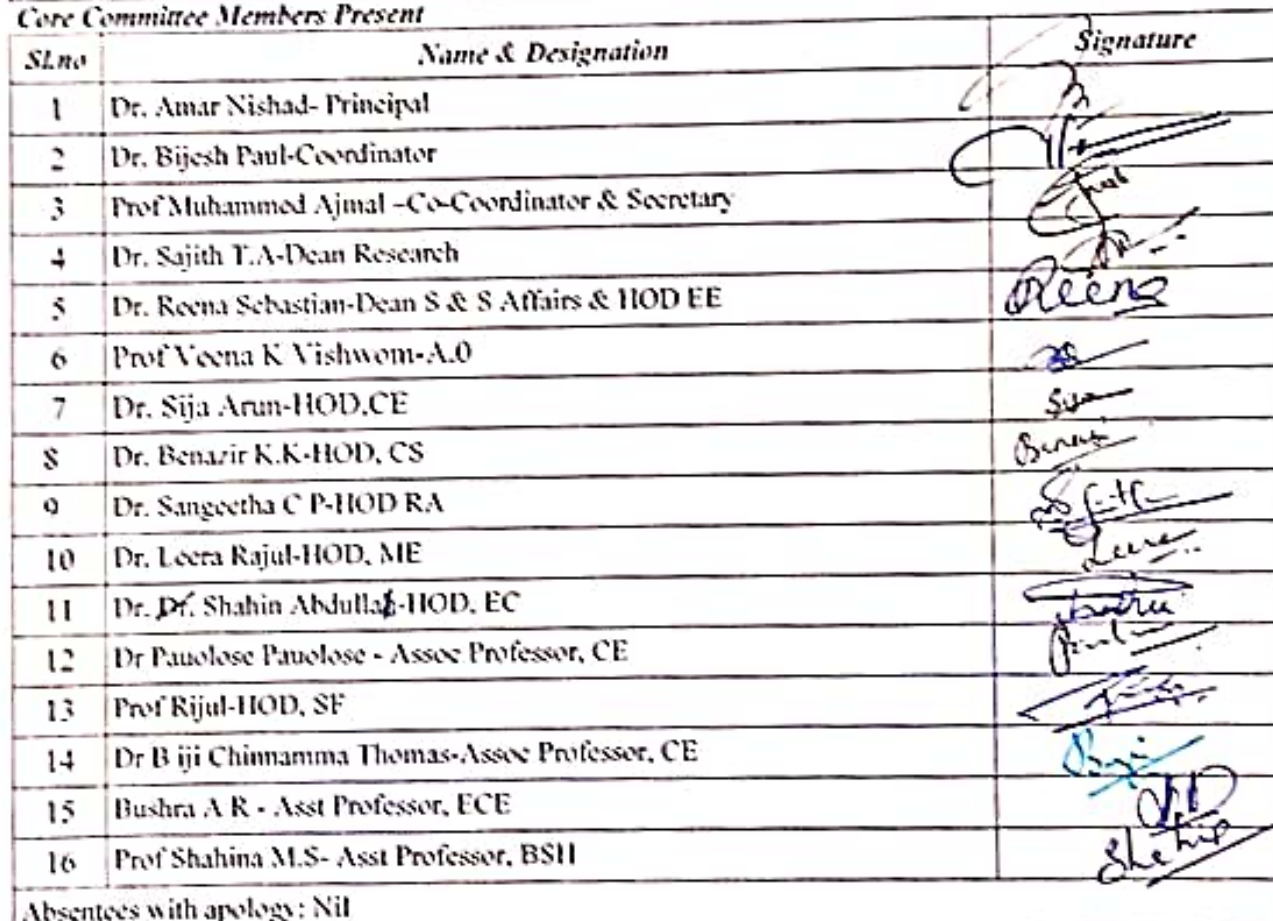 Core Committee Members Present
Sl.no Name & Designation Signature
1 Dr. Amar Nishad- Principal
2 Dr. Bijesh Paul-Coordinator
3 Prof Muhammed Ajmal –Co-Coordinator & Secretary
4 Dr. Sajith T.A-Dean Research
5 Dr. Reena Sebastian-Dean S & S Affairs & HOD EE Reena
6 Prof Veena K Vishwom-A.0
7 Dr. Sija Arun-HOD,CE
8 Dr. Benazir K.K-HOD, CS
9 Dr. Sangeetha C P-HOD RA
10 Dr. Leera Rajul-HOD, ME
11 Dr. Dr. Shahin Abdullah-HOD, EC
12 Dr Pauolose Pauolose - Assoc Professor, CE
13 Prof Rijul-HOD, SF
14 Dr B iji Chinnamma Thomas-Assoc Professor, CE
15 Bushra A R - Asst Professor, ECE
16 Prof Shahina M.S- Asst Professor, BSH
Absentees with apology: Nil